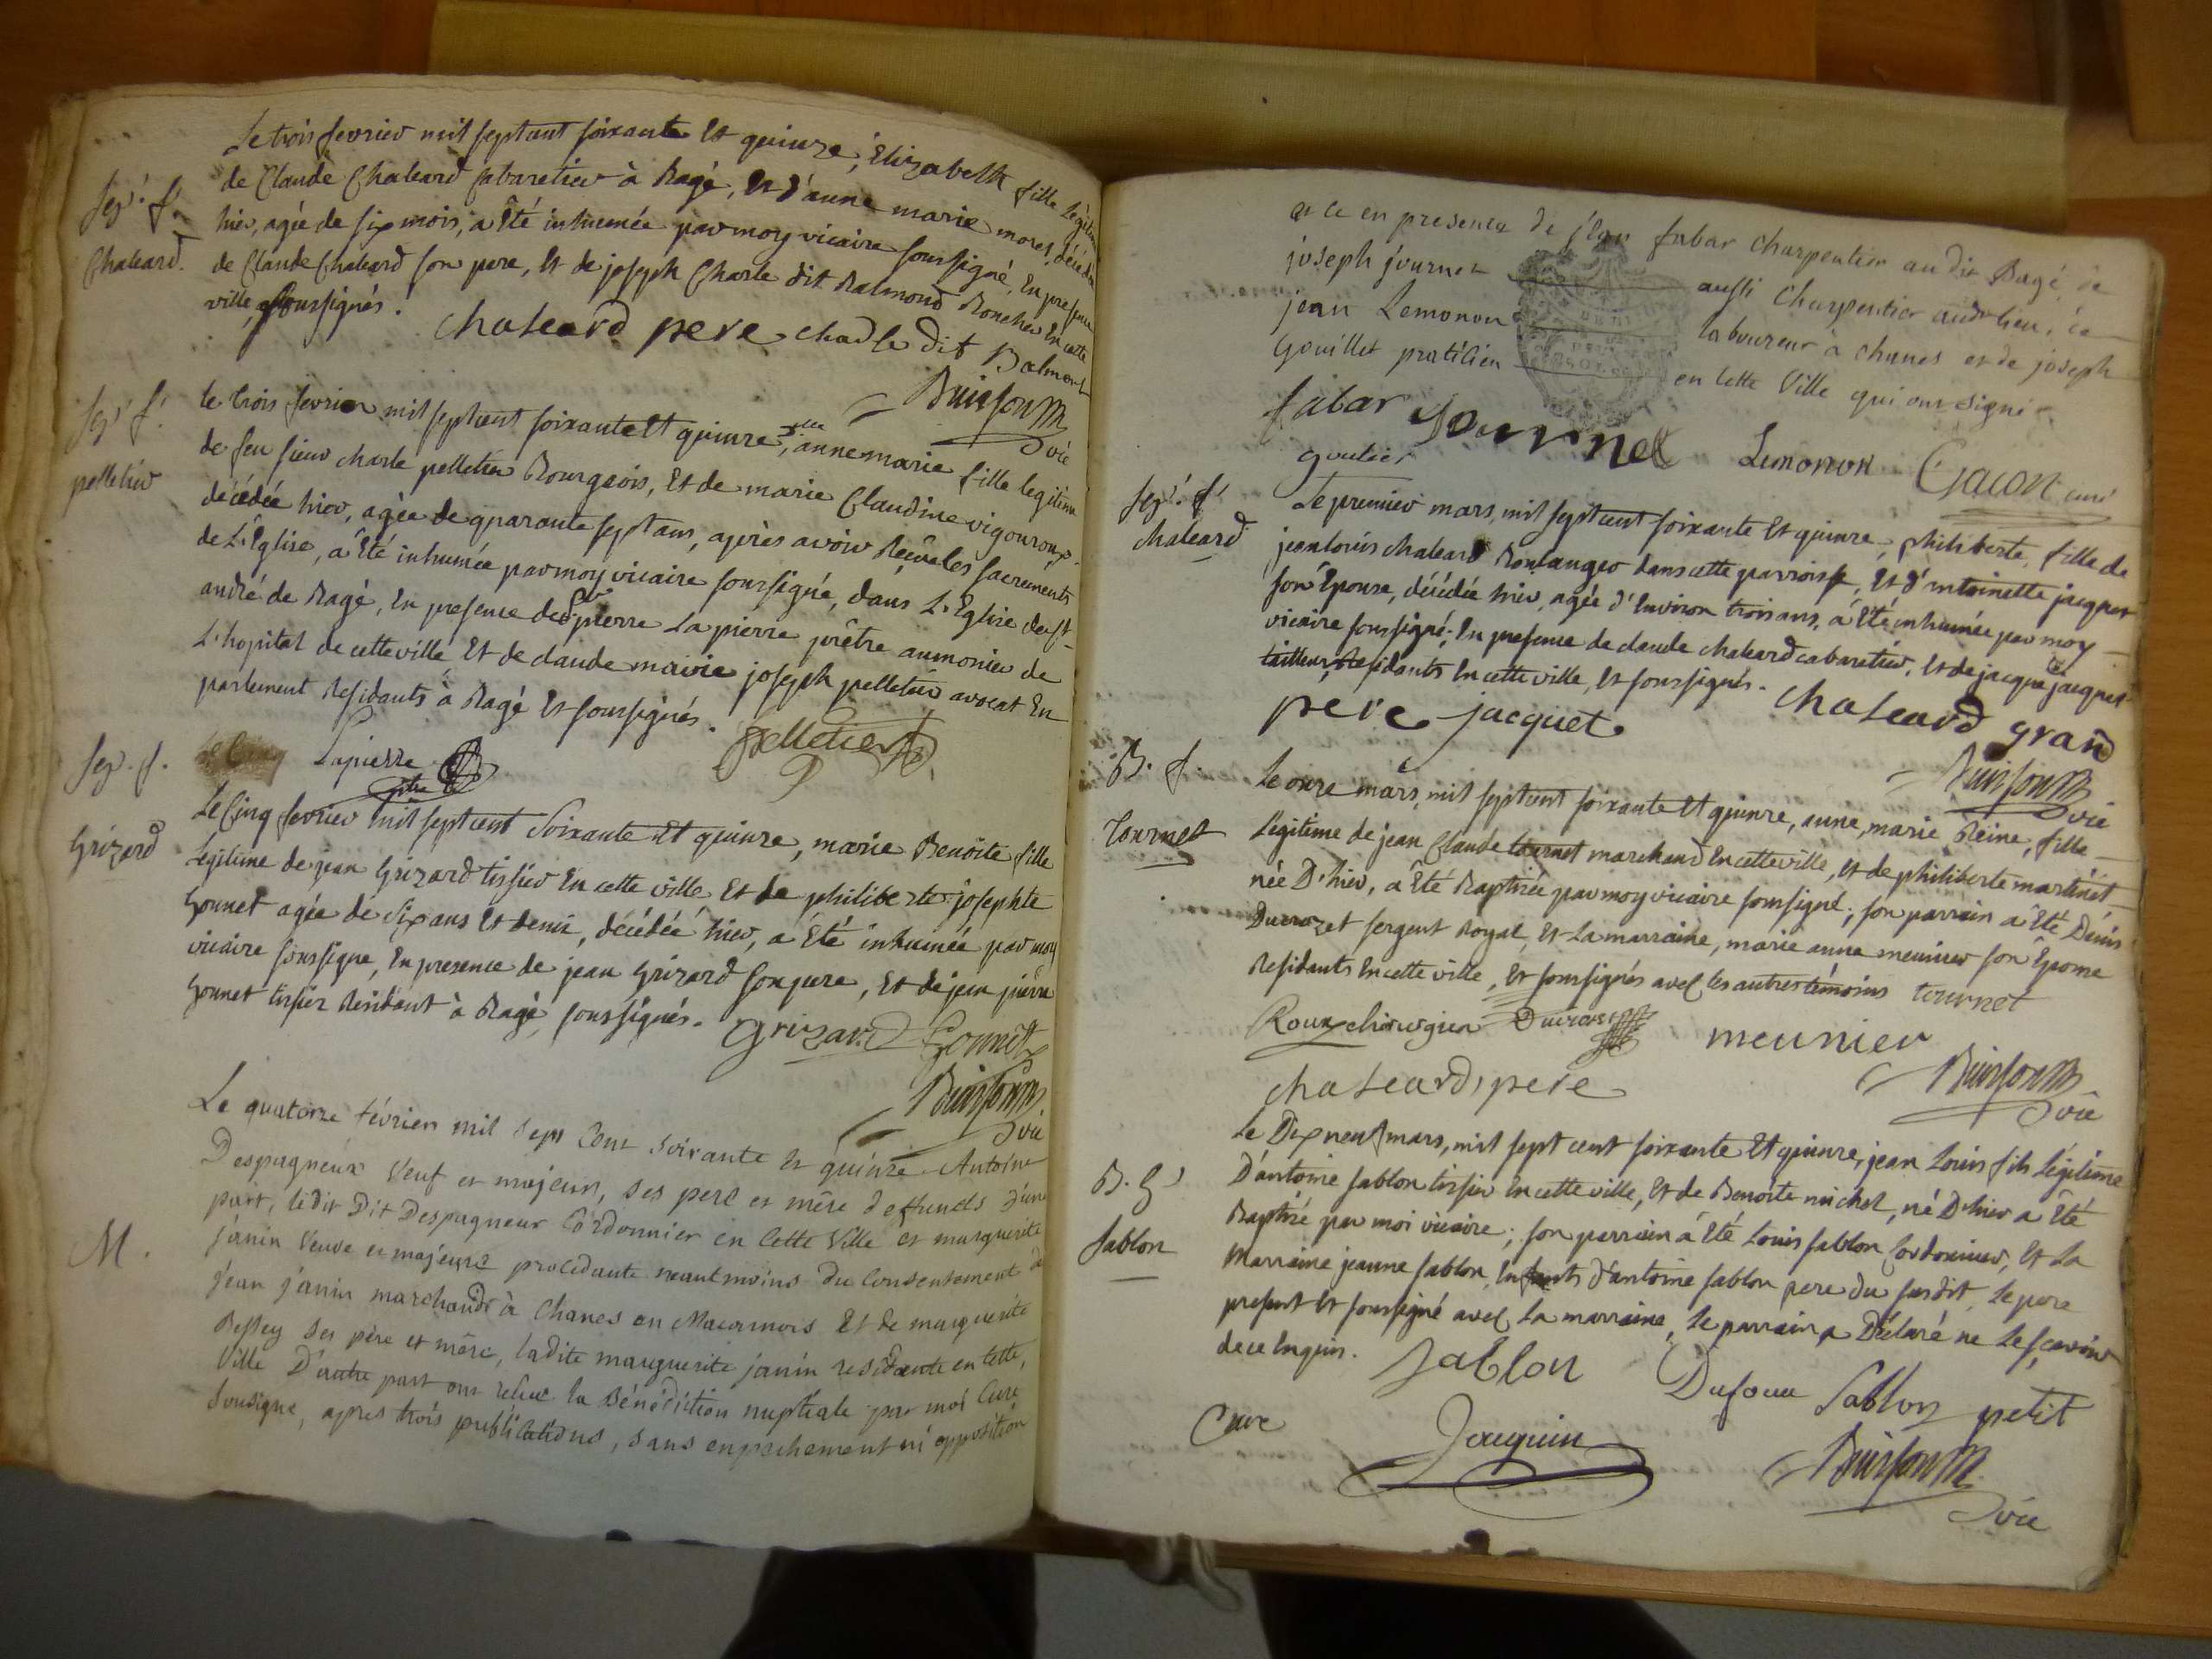 Le trois fevrier mil septcent soixante Et quinze, Elizabeth fille Légitime
de Claude Chaleard Cabaretier à Bagé, Et d'anne marie morel, décédée
Sep. f. hier, agée de six mois, a Eté inhumée par moy vicaire soussigné, En presence
Chaleard. de Claude Chaleard son pere, Et de joseph Charle dit Balmond Boucher En cette
ville, soussignés.
chaleard pere charle dit Balmont
Buisson
vic
Sep. f. le trois fevrier mil septcent soixante Et quinze, dlle anne marie fille legitime
pelletier de feu sieur charle pelletier Bourgeois, Et de marie Claudine vigouroux
décédée hier, agée de quarante sept ans, après avoir Reçu les sacrements
de L'Eglise, a Eté inhumée par moy vicaire soussigné, dans L'Eglise de st
andré de Bagé, En presence de sr pierre La pierre prêtre aumonier de
L'hopital de cette ville Et de claude marie joseph pelletier avocat En
parlement Residants à Bagé Et soussignés.
pelletier
Lapierre
ptre
Sep. f. Le Cinq fevrier mil sept cent Soixante Et quinze, marie Benoite fille
Grizard Legitime de jean Grizard tissier En cette ville Et de philiberte josephte
Gonnet agée de Six ans Et demi, décédée hier, a Eté inhumée par moy
vicaire soussigne, En presence de jean Grizard son pere, Et de jean pierre
Gonnet tissier Residant à Bagé, soussignés.
grizard Gonnet
Buisson
vic
Le quatorze février mil sept Cent soixante et quinze Antoine
Despagneux Veuf et majeur, ses pere et mère deffunts d'une
part, ledit Despagneux Cordonnier en Cette Ville et marguerite
M. janin Veuve et majeure procedante neantmoins du Consentement de
jean janin marchand à Chanes en Maconnois Et de marguerite
Bessey ses père et mère, ladite marguerite janin residante en cette
Ville D'autre part ont reçue la Bénédiction nuptiale par moi Curé
Sousigne, apres trois publications, sans enpechement ni opposition
et ce en presence de jean fabar charpentier au dit Bagé, de
joseph journet aussi Charpentier audt lieu, de
jean Lemonon laboureur à Chanes et de joseph
Gouillet praticien en Cette Ville qui ont signé
fabar Journet Lemonon Gacon curé
Sep. f. Le premier mars, mil septcent soixante Et quinze, philiberte, fille de
chaleard jean louis chaleard Boulanger dans cette parroisse, Et d'antoinette jacquet
son Epouse, décédée hier, agée d'Environ trois ans, a Eté inhumée par moy
vicaire soussigné; En presence de claude chaleard cabaretier, Et de jacque jacquet
tailleur, Residants En cette ville, Et soussignés. chaleard grand
pere jacquet
Buisson
vic
B. f. Le onze mars, mil septcent soixante Et quinze, anne, marie Reine, fille
tournet Légitime de jean Claude tournet marchand En cette ville, Et de philiberte martinet
née D'hier, a Eté Baptisée par moy vicaire soussigné; son parrain a Eté Denis
Ducrozet sergent Royal, Et La marraine, marie anne meunier son Epouse
Residants En cette ville, Et soussignés avec les autres témoins tournet
Roux chirurgien Ducroset meunier
chaleard, pere Buisson
vic
Le Dix neuf mars, mil sept cent soixante Et quinze, jean Louis fils Légitime
B. g. D'antoine sablon tissier En cette ville, Et de Benoite michel, né D'hier a Eté
Sablon Baptisé par moi vicaire; son parrain a Eté Louis sablon Cordonnier, Et La
marraine jeanne sablon, Enfants d'antoine sablon pere du susdit, Le pere
present Et soussigné avec La marraine, Le parrain a Déclaré ne Le sçavoir
de ce Enquis. Sablon Dufour Sablon petit
Cure Jacquin Buisson
vic